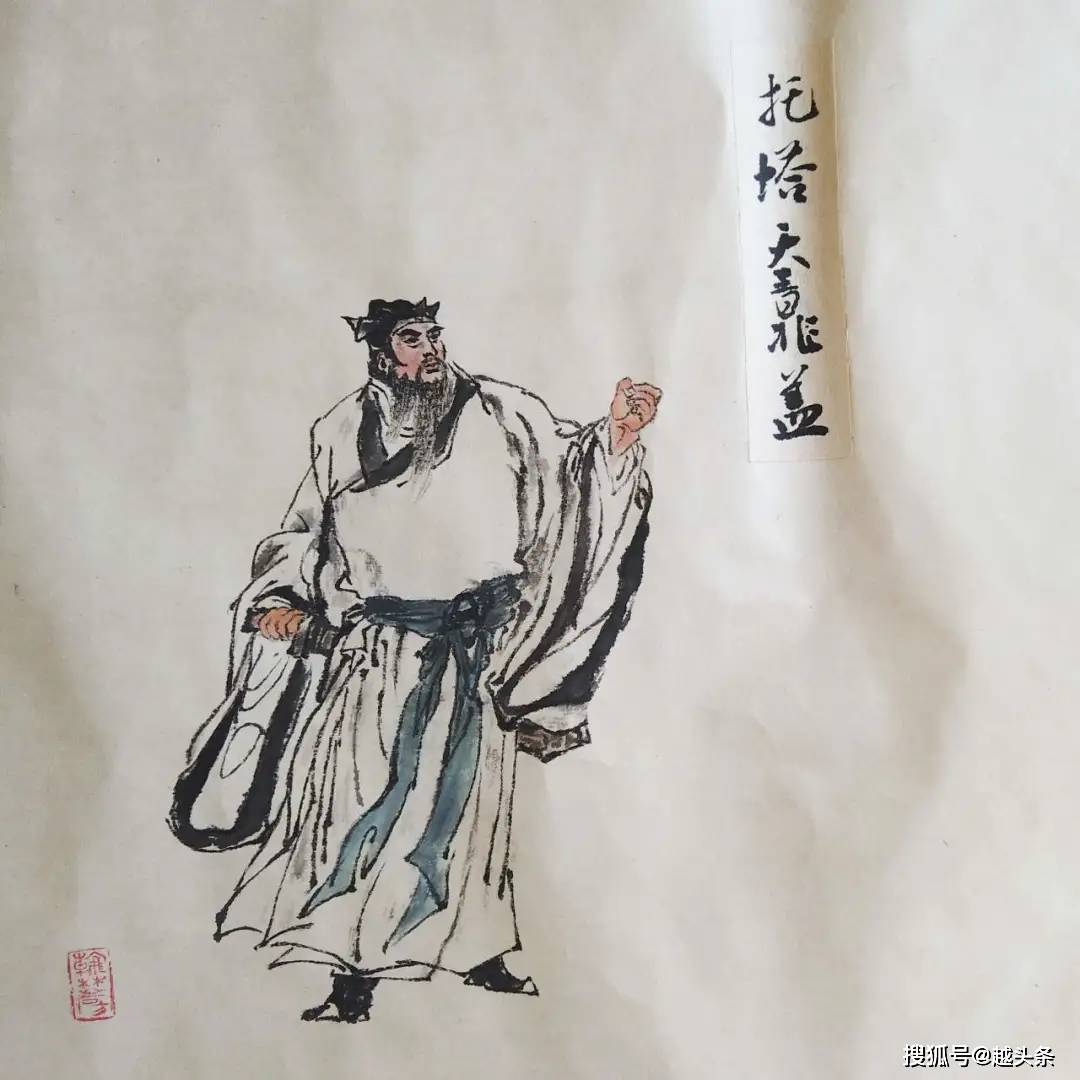 托塔天王晁盖
搜狐号@越头条